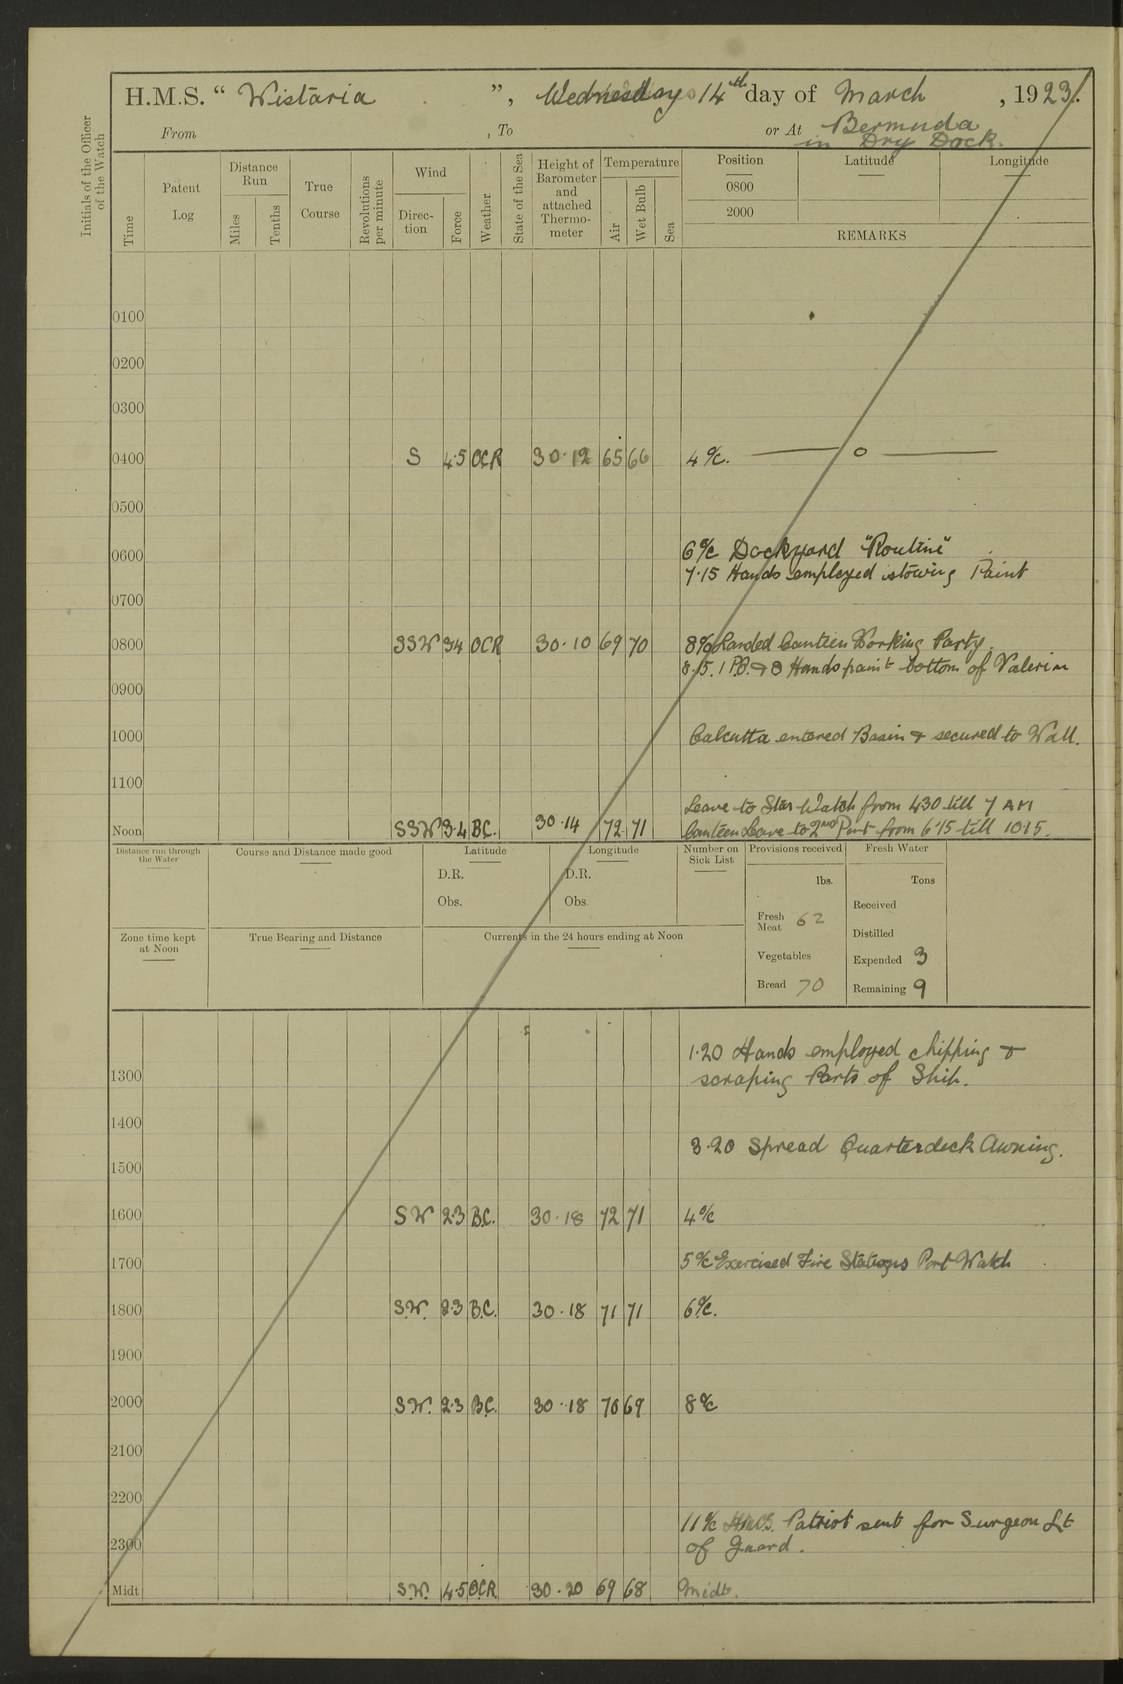 H.M.S. “ Wistaria ”, Wednesday 14th day of March , 1923.
From , To or At Bermuda
in Dry Dock.
Initials of the Officer of the Watch
Time
Patent Log
Distance Run
Miles
Tenths
True Course
Revolutions per minute
Wind
Direc-tion
Force
Weather
State of the Sea
Height of Barometer and attached Thermo-meter
Temperature
Air
Wet Bulb
Sea
Position Latitude Longitude
0800
2000
REMARKS
0100
0200
0300
0400 S 4·5 OCR 30·12 65 66 4 o/c. — o —
0500
0600 6 o/c Dockyard "Routine"
7·15 Hands employed stowing Paint
0700
0800 SSW 34 OCR 30·10 69 70 8 o/c Landed Canteen Working Party.
8.15. 1 P.O. & 8 Hands paint bottom of Valerian
0900
1000 Calcutta entered Basin & secured to Wall.
1100
Leave to Star Watch from 430 till 7 AM
Noon SSW 3·4 BC. 30·14 72 71 Canteen Leave to 2nd Part from 6·15 till 1015.
Distance run through the Water
Course and Distance made good
Latitude
D.R.
Obs.
Longitude
D.R.
Obs.
Number on Sick List
Provisions received
lbs.
Fresh Meat 62
Vegetables
Bread 70
Fresh Water
Tons
Received
Distilled
Expended 3
Remaining 9
Zone time kept at Noon
True Bearing and Distance
Currents in the 24 hours ending at Noon
1·20 Hands employed chipping &
1300 scraping Parts of Ship.
1400
3·20 Spread Quarterdeck Awning.
1500
1600 SW 2·3 B.C. 30·18 72 71 4 o/c
1700 5 o/c Exercised Fire Stations Port Watch
1800 S.W. 2·3 B.C. 30·18 71 71 6 o/c.
1900
2000 S.W. 2·3 B.C. 30·18 70 69 8 o/c
2100
2200
11 o/c H.M.S. Patriot sent for Surgeon Lt
2300 of Guard.
Midt S.W. 4·5 OCR 30·20 69 68 Midt.